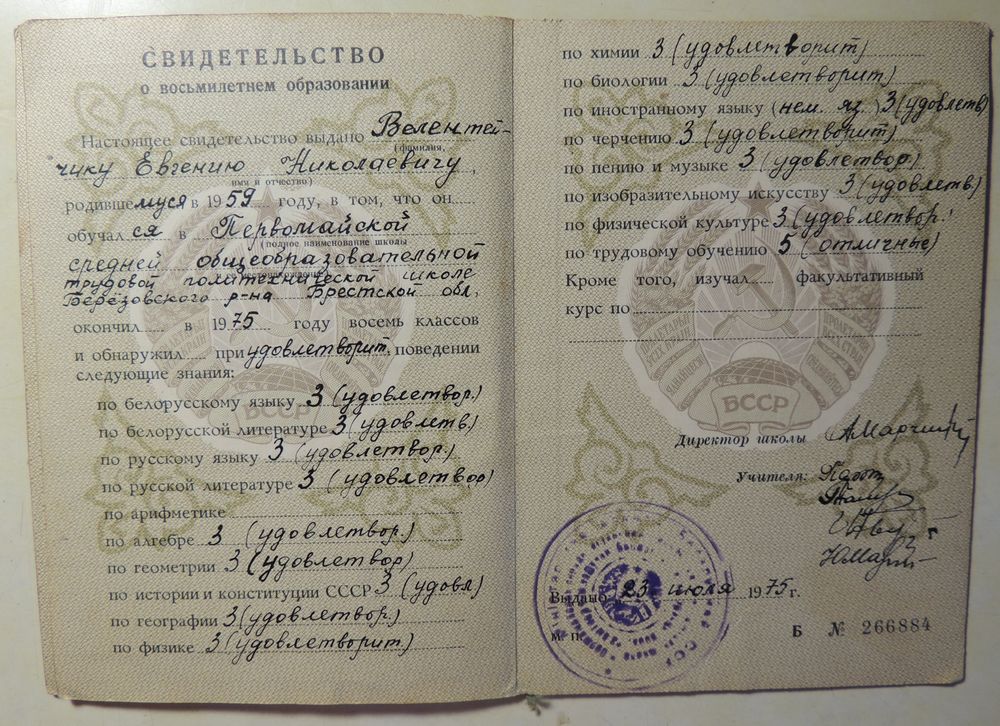 СВИДЕТЕЛЬСТВО
о восьмилетнем образовании
Настоящее свидетельство выдано Велентей-
(фамилия,
чику Евгению Николаевичу,
имя и отчество)
родившемуся в 1959 году, в том, что он
обучался в Первомайской
(полное наименование школы
средней общеобразовательной
трудовой политехнической школе
Берёзовского р-на Брестской обл.
окончил в 1975 году восемь классов
и обнаружил при удовлетворит. поведении
следующие знания:
по белорусскому языку 3 (удовлетвор.)
по белорусской литературе 3 (удовлетв.)
по русскому языку 3 (удовлетвор.)
по русской литературе 3 (удовлетвор)
по арифметике
по алгебре 3 (удовлетвор.)
по геометрии 3 (удовлетвор)
по истории и конституции СССР 3 (удовл)
по географии 3 (удовлетвор.)
по физике 3 (удовлетворит)
БССР
по химии 3 (удовлетворит)
по биологии 3 (удовлетворит)
по иностранному языку (нем. яз.) 3 (удовлетв)
по черчению 3 (удовлетворит)
по пению и музыке 3 (удовлетвор.)
по изобразительному искусству 3 (удовлетв)
по физической культуре 3 (удовлетвор.)
по трудовому обучению 5 (отличные)
Кроме того, изучал факультативный
курс по
БССР
Директор школы
Учителя:
Выдано 23 июля 1975 г.
М. п.
Б № 266884